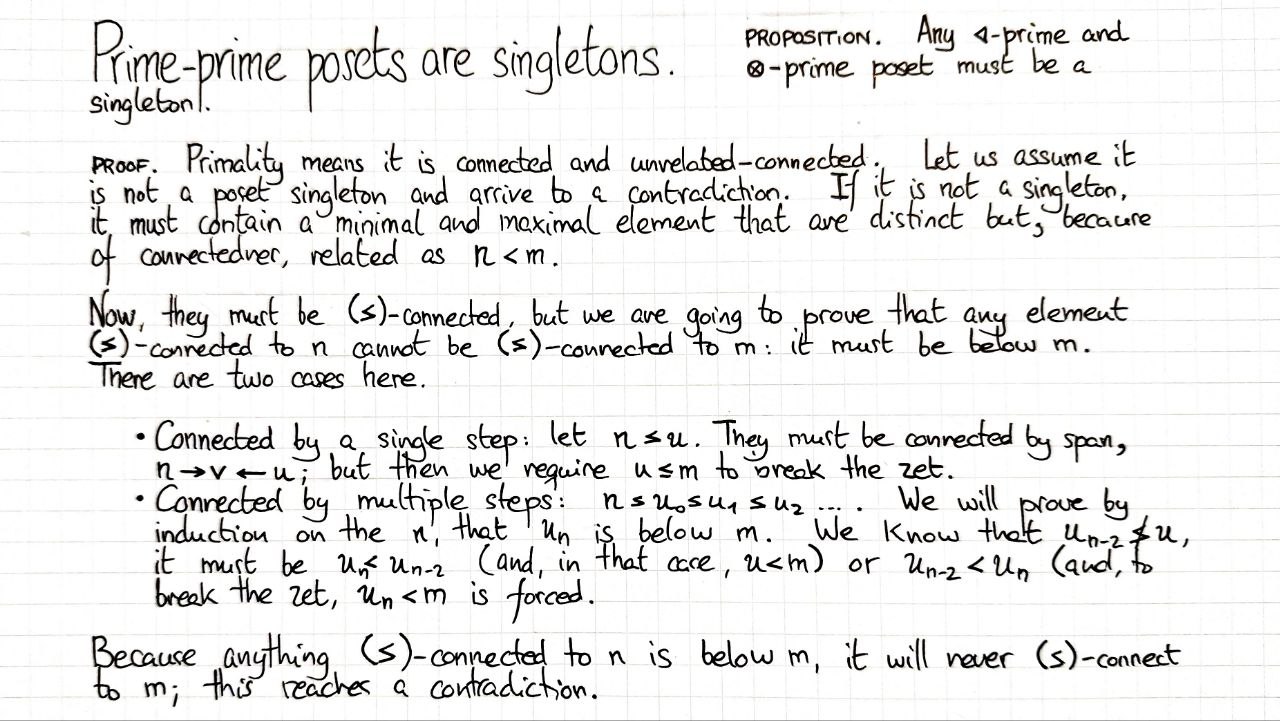 Prime-prime posets are singletons.
PROPOSITION. Any ◁-prime and
⊗-prime poset must be a
singleton.
PROOF. Primality means it is connected and unrelated-connected. Let us assume it
is not a poset singleton and arrive to a contradiction. If it is not a singleton,
it must contain a minimal and maximal element that are distinct but, because
of connectedness, related as n < m.
Now, they must be (≶)-connected, but we are going to prove that any element
(≶)-connected to n cannot be (≶)-connected to m: it must be below m.
There are two cases here.
• Connected by a single step: let n ≶ u. They must be connected by span,
n → v ← u; but then we require u ≤ m to break the zet.
• Connected by multiple steps: n ≶ u₀ ≶ u₁ ≶ u₂ .... We will prove by
induction on the n, that uₙ is below m. We know that uₙ₋₂ ≸ u,
it must be uₙ < uₙ₋₂ (and, in that case, u < m) or uₙ₋₂ < uₙ (and, to
break the zet, uₙ < m is forced.
Because anything (≶)-connected to n is below m, it will never (≶)-connect
to m; this reaches a contradiction.